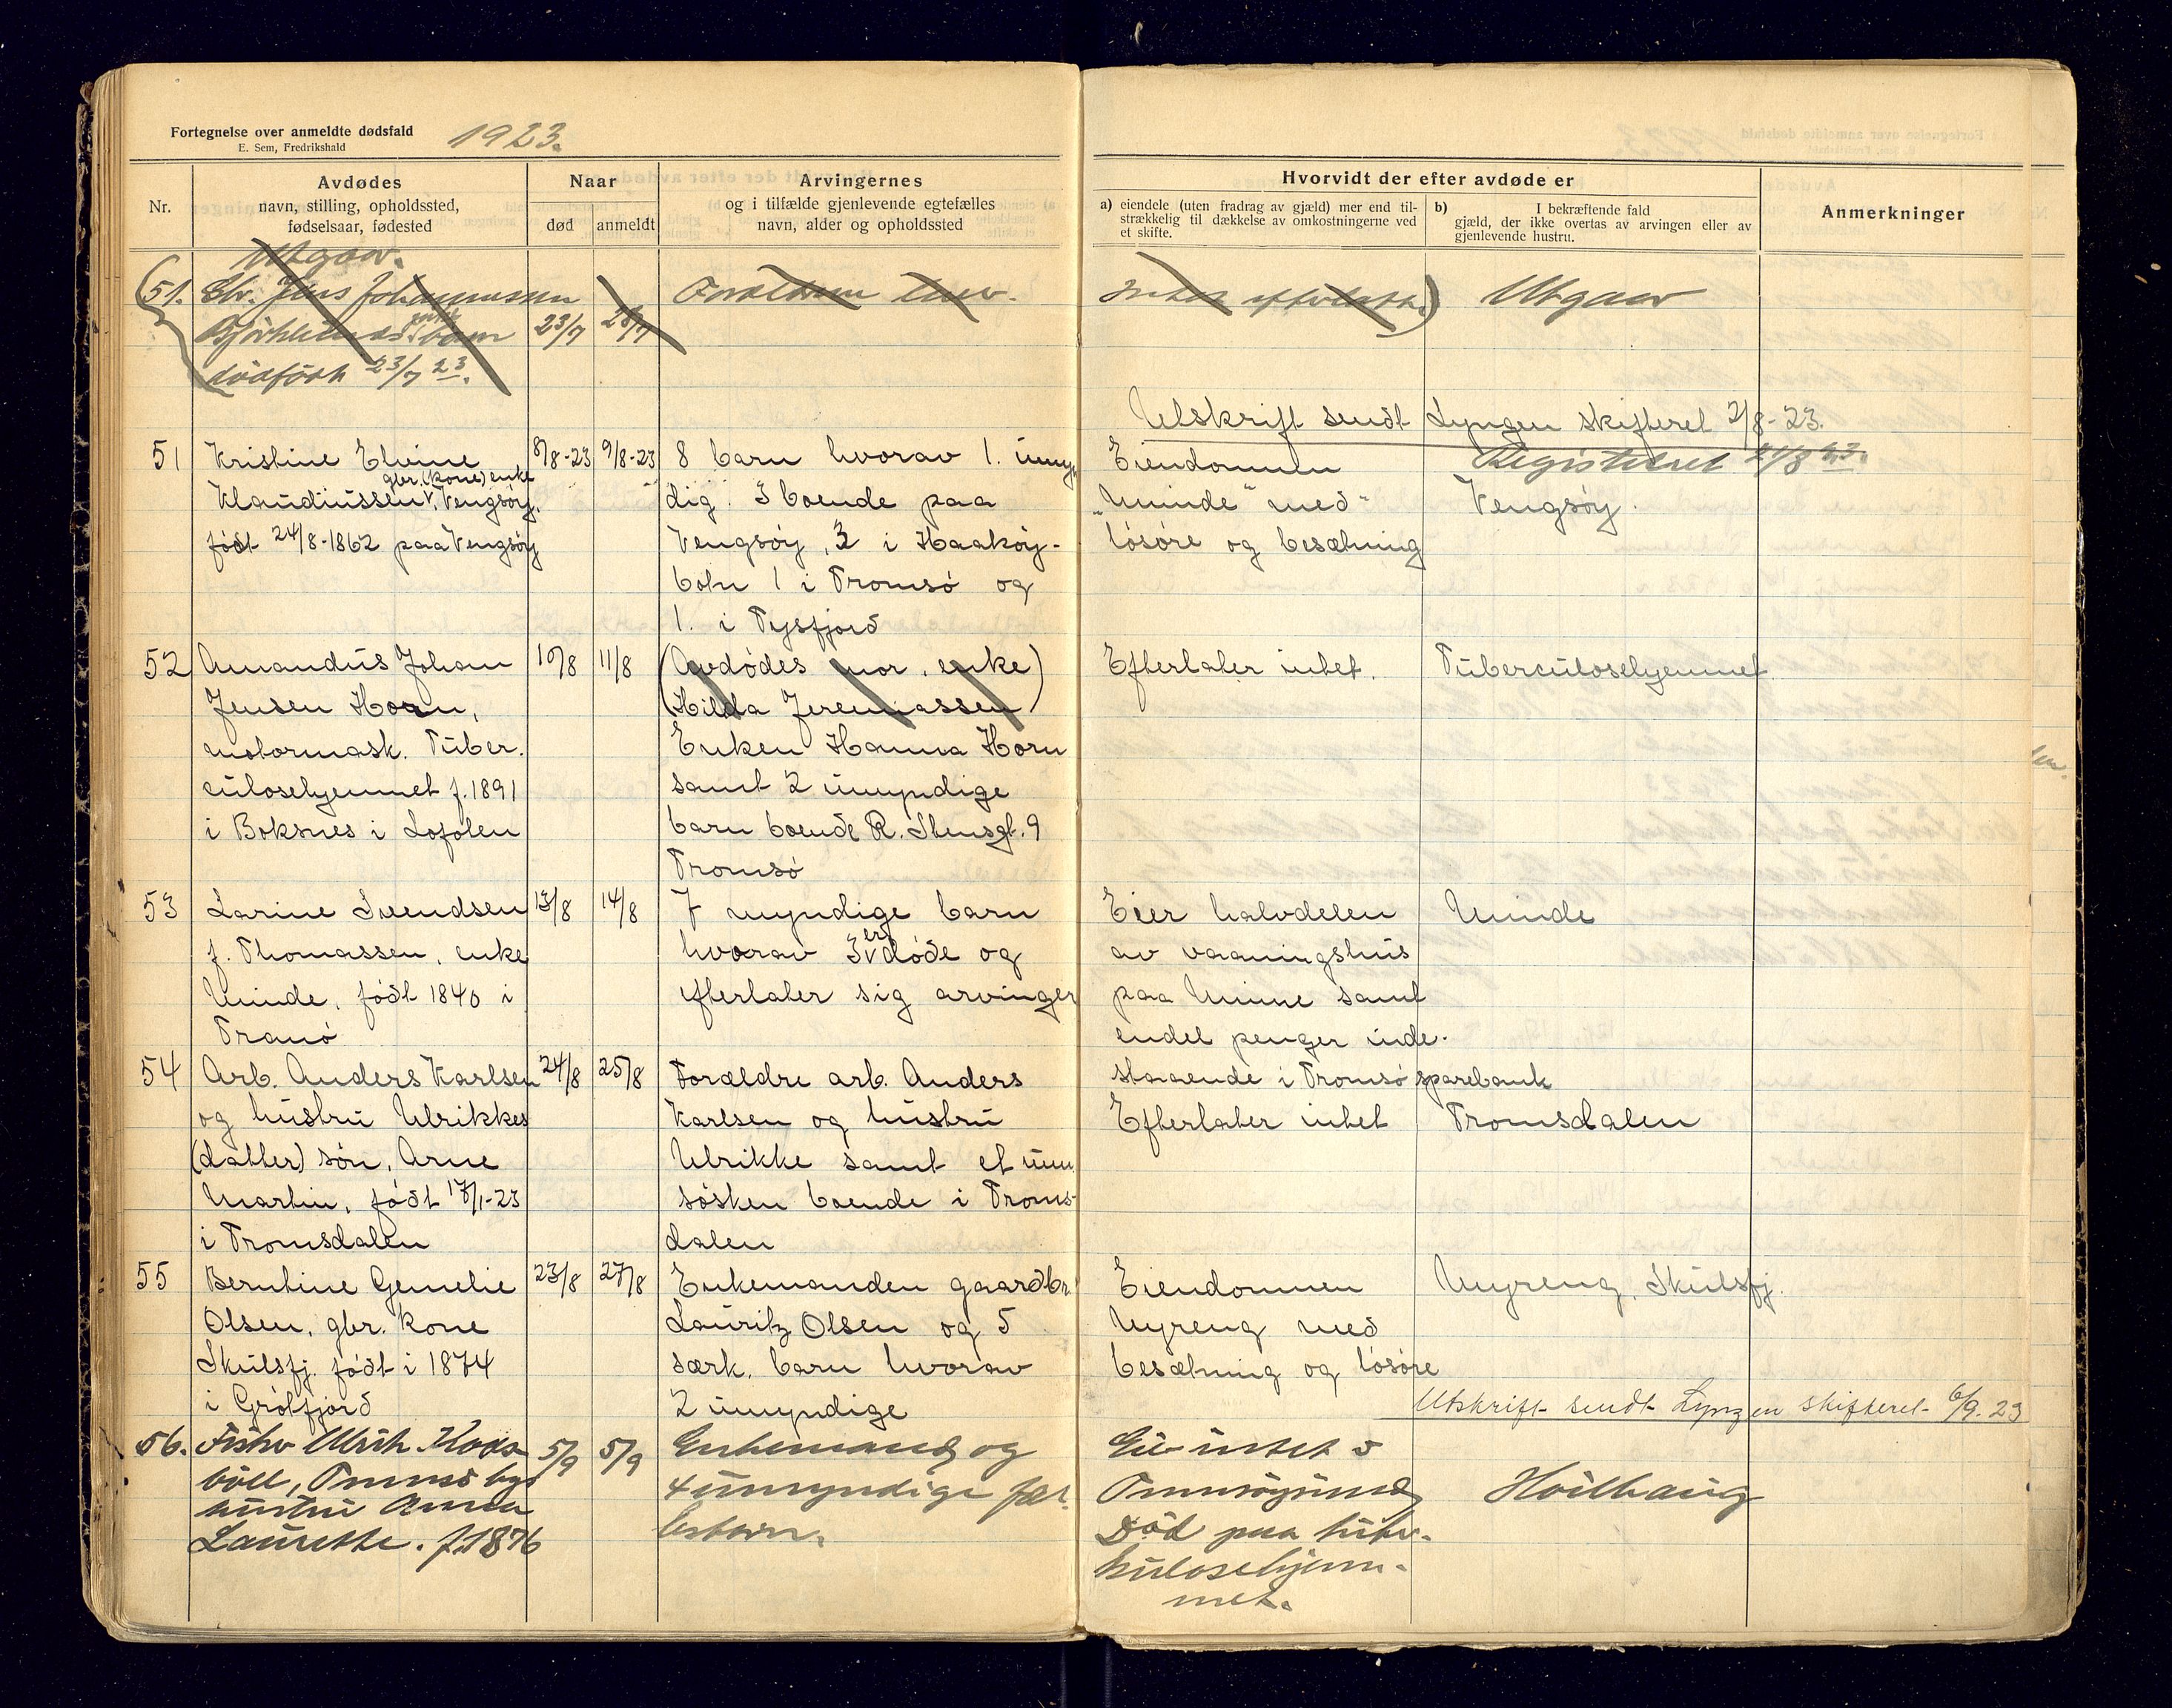 Fortegnelse over anmeldte dødsfald 1923.
E. Sem, Fredrikshald
Nr.
Avdødes
navn, stilling, opholdssted,
fødselsaar, fødested
Naar
død
anmeldt
Arvingernes
og i tilfælde gjenlevende egtefælles
navn, alder og opholdssted
Hvorvidt der efter avdøde er
a) eiendele (uten fradrag av gjæld) mer end til-
strækkelig til dækkelse av omkostningerne ved
et skifte.
b) I bekræftende fald
gjæld, der ikke overtas av arvingen eller av
gjenlevende hustru.
Anmerkninger
Utgaar.
51. Jens Johannessen
barn
dødfödt 23/7 23.
23/7
28/7
Forældrene lever.
Intet efterlatt.)
Utgaar
Utskrift sendt Lyngen skifteret 2/8-23.
51
Kristine Elvine
gbr. (kone) enke
Klaudiussen, Vengsøy,
født 24/8-1862 paa Vengsøy
8/8-23
9/8-23
8 barn hvorav 1. umyn
dig. 3 boende paa
Vengsøy, 3 i Haakøy-
botn 1 i Tromsø og
1. i Tysfjord
Eiendommen
"Minde" med
løsøre og besætning
Registreret 21/8 23.
Vengsøy.
52
Amandus Johan
Jensen Horn,
motormask. Tuber.
culosehjemmet f. 1891
i Boksnes i Lofoten
10/8
11/8
(Avdødes mor, enke)
(Hilda Jeremiassen)
Enken Hanna Horn
samt 2 umyndige
barn boende R. Stensgt. 9
Tromsø
Efterlater intet.
Tuberculosehjemmet
53
Larine Svendsen
f. Thomassen, enke
Minde, født 1840 i
Tranø
13/8
14/8
7 myndige barn
hvorav 3 er døde og
efterlater sig arvinger
Eier halvdelen
av vaaningshus
paa Minne samt
endel penger inde-
staaende i Tromsø sparebank
Minde
54
Arb. Anders Karlsen
og hustru Ulrikkes
(datter) søn, Arne
Martin, født 17/1-23
i Tromsdalen
24/8
25/8
Forældre arb. Anders
Karlsen og hustru
Ulrikke samt et um.
søsken boende i Troms-
dalen
Efterlater intet
Tromsdalen
55
Berntine Gemelie
Olsen, gbr. kone
Skulsfj. født i 1874
i Grøtfjord
23/8
27/8
Enkemanden gaardbr.
Lauritz Olsen og 5
særk. barn hvorav
2 umyndige
Eiendommen
Nyreng med
besætning og løsøre
Nyreng, Skulsfj.
Utskrift sendt Lyngen skifteret 6/9. 23
56.
Fisker Ulrik
hustru Anna
Laurette. f. 1876
5/9
5/9
Enkemand og
4 umyndige fæl-
lesbarn.
Eier intet i
Tromsøysund
Død paa tuber-
kulosehjem-
met.
Høilhaug